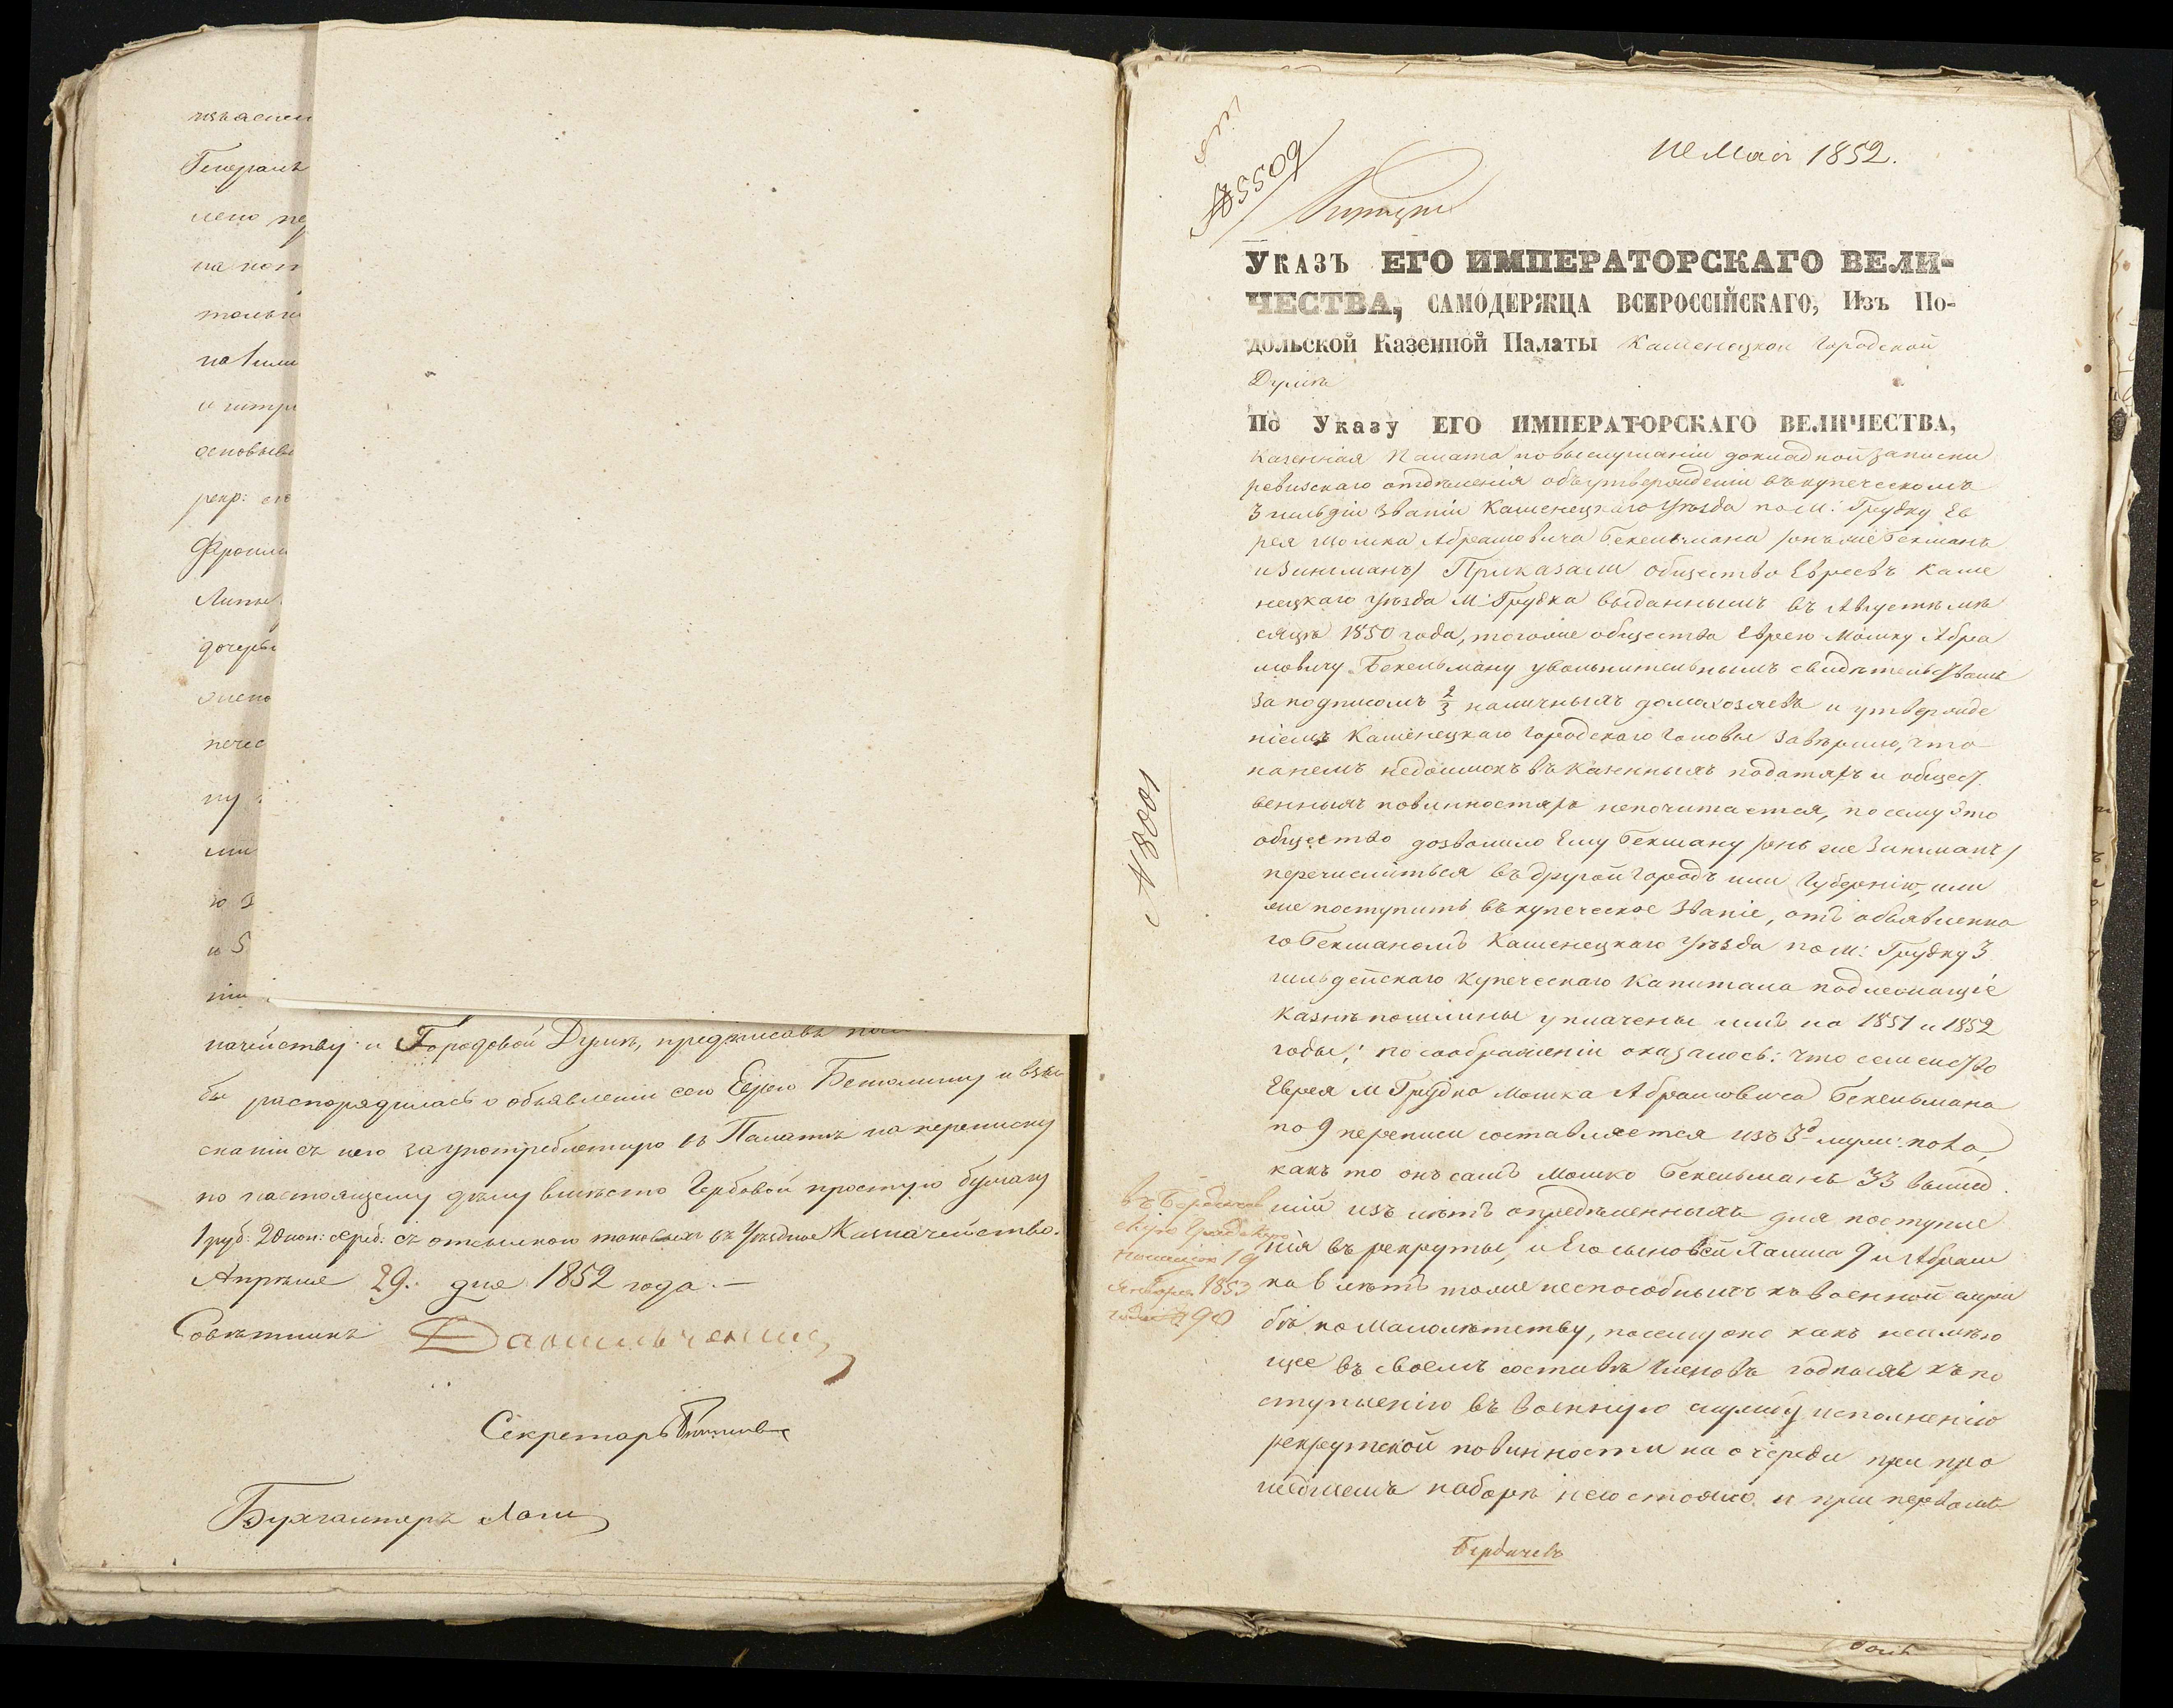 изъясн
Генералъ
лено пе
на кон
только
на 1 или
и штра
основыва
рекр: его
Фроим
Липы
дочерь
пу
ю 3
и 5
начейству и Городовой Думѣ, предписавъ
бы распорядилась о объявленіи сего Еврею и взы
сканіи съ него за употребленную въ Палатѣ на переписку
по настоящему дѣлу вмѣсто Гербовой простую бумагу
1 руб: 20 коп: сереб: съ отсылкою таковыхъ въ Уѣздное Казначейство.
Апрѣля 29. дня 1852 года.—
Совѣтникъ
Секретарь
Бухгалтеръ
Мая 1852.
№ 5509
Указъ ЕГО ИМПЕРАТОРСКАГО ВЕЛИ-
ЧЕСТВА, САМОДЕРЖЦА ВСЕРОССІЙСКАГО, Изъ По-
дольской Казенной Палаты Каменецкой Городской
Думѣ
По Указу ЕГО ИМПЕРАТОРСКАГО ВЕЛИЧЕСТВА,
Казенная Палата по выслушаніи докладной записки
ревизскаго отдѣленія объ утвержденіи въ купеческомъ
3 гильдіи званіи Каменецкаго Уѣзда по м: Грудку Ев
рея Мошка Абрамовича Бекельмана /онъ же Бекманъ
и Зинкманъ/ Приказали общество Евреевъ Каме
нецкаго Уѣзда М: Грудка выданнымъ въ Августѣ мѣ
сяцѣ 1850 года, тогоже общества Еврею Мошку Абра
мовичу Бекельману увольнительнымъ свидѣтельствомъ
за подписомъ 2/3 наличныхъ домохозяевъ и утвержде
ніемъ Каменецкаго Городскаго Головы завѣрило, что
на немъ недоимокъ въ казенныхъ податяхъ и общест
венныхъ повинностяхъ непочитается, по сему это
общество дозволило Ему Бекману /онъ же Зинкманъ/
перечислиться въ другой городъ или Губернію, или
же поступить въ купеческое званіе, отъ объявленна
го Бекманомъ Каменецкаго Уѣзда по М: Грудку 3
гильдейскаго купеческаго капитала подлежащіе
казнѣ пошлины уплачены имъ на 1851 и 1852
годы; по соображеніи оказалось: что семейство
Еврея М Грудка Мошка Абрамовича Бекельмана
по 9 переписи составляется изъ 3хъ муж: пола,
какъ то онъ самъ Мошко Бекельманъ 33 вышед
шій изъ лѣтъ опредѣленныхъ для поступле
нія въ рекруты, и Его сыновей Хаима 9 и Абрам
ка 6 лѣтъ тоже неспособныхъ къ военной служ
бѣ по малолѣтству, посему оно какъ неимѣю
щее въ своемъ составѣ членовъ годныхъ къ по
ступленію въ военную службу исполненію
рекрутской повинности на очереди при про
шедшемъ наборѣ не состояло и при первомъ
№ 8001
въ Бердичев
скую Градскую
19
Января 1853
года № 90
Бердичевъ